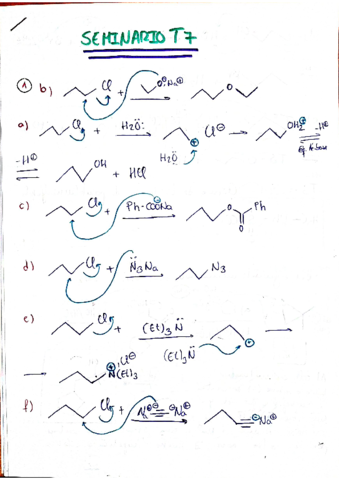 SEMINARIO T7
① b) Cl + O:Na⊕ O
a) Cl + H₂Ö: ⊕ Cl⊖ OH₂⊕ -H⊕
H₂Ö Eq. Ac-base
-H⊕ OH + HCl
c) Cl + Ph-COONa O Ph
O
d) Cl + N₃Na N₃
e) Cl + (Et)₃N̈ ⊕
(Et)₃N̈
Cl⊖
⊕N(Et)₃
f) Cl + Na⊕ ⊖Na⊕